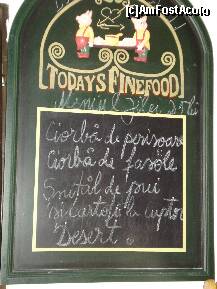 [c]AmFostAcolo.ro
TODAYS FINEFOOD!
Meniul Zilei 25 lei
Ciorbă de perisoare
Ciorbă de fasole
Snițăl de pui
și cartofi la cuptor
Desert.